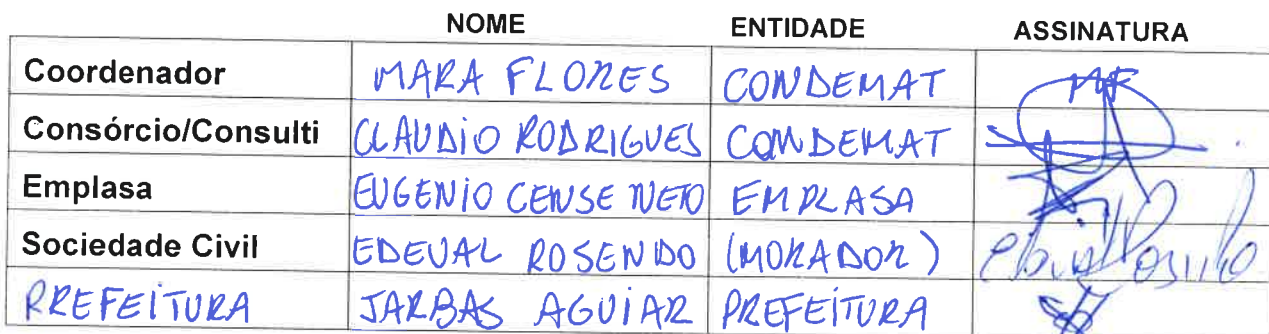 NOME ENTIDADE ASSINATURA
Coordenador MARA FLORES CONDEMAT MF
Consórcio/Consulti CLAUDIO RODRIGUES CONDEMAT
Emplasa EUGENIO CENSE NETO EMPLASA
Sociedade Civil EDEVAL ROSENDO (MORADOR)
PREFEITURA JARBAS AGUIAR PREFEITURA